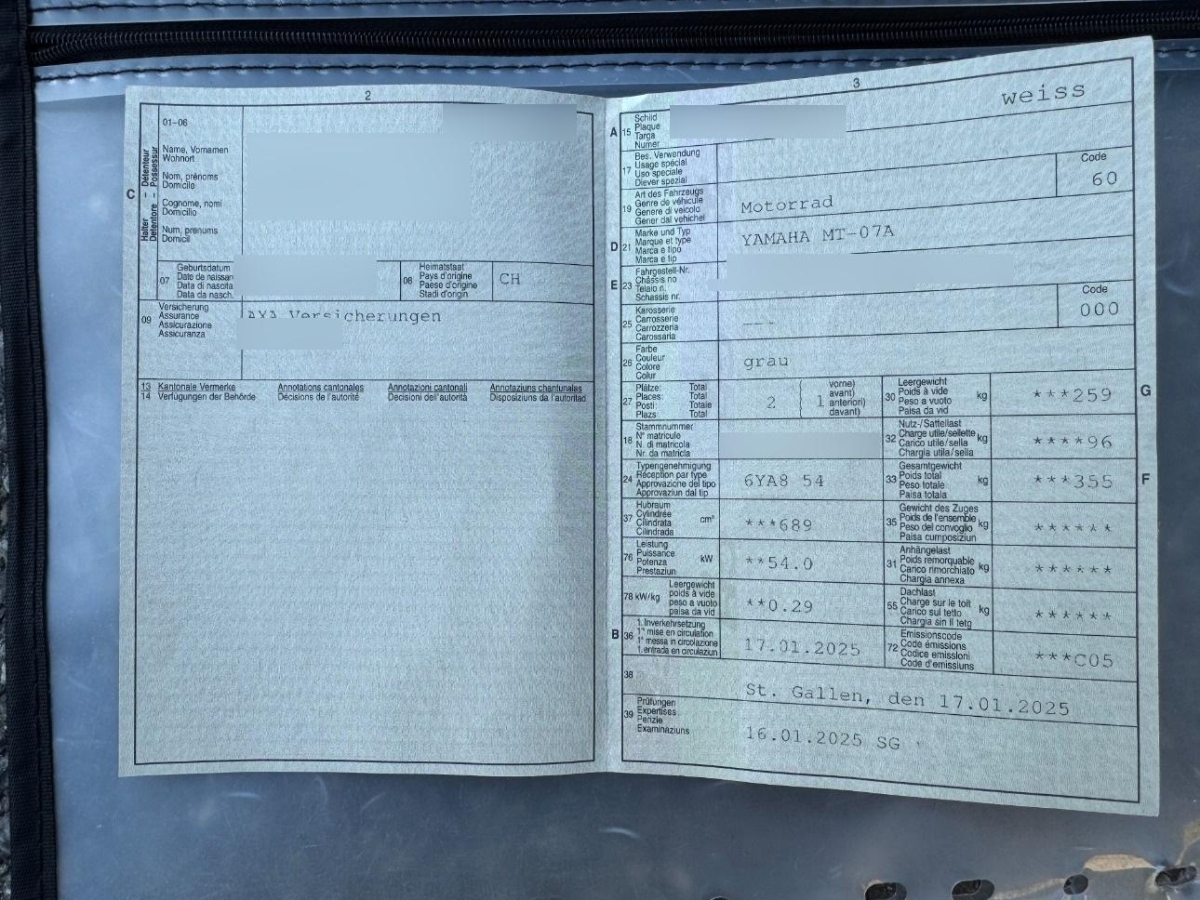 2
01-06
Name, Vornamen
Wohnort
Nom, prénoms
Domicile
Cognome, nomi
Domicilio
Num, prenums
Domicil
C
Halter - Détenteur
Detentore - Possessur
07
Geburtsdatum
Date de naissan
Data di nascita
Data da nasch.
08
Heimatstaat
Pays d'origine
Paese d'origine
Stadi d'origin
CH
09
Versicherung
Assurance
Assicurazione
Assicuranza
AXA Versicherungen
13
14
Kantonale Vermerke
Verfügungen der Behörde
Annotations cantonales
Décisions de l'autorité
Annotazioni cantonali
Decisioni dell'autorità
Annotaziuns chantunalas
Disposiziuns da l'autoritad
3
weiss
A
15
Schild
Plaque
Targa
Numer
17
Bes. Verwendung
Usage spécial
Uso speciale
Diever spezial
Code
60
19
Art des Fahrzeugs
Genre de véhicule
Genere di veicolo
Gener dal vehichel
Motorrad
D
21
Marke und Typ
Marque et type
Marca e tipo
Marca e tip
YAMAHA MT-07A
E
23
Fahrgestell-Nr.
Châssis no
Telaio n.
Schassis nr.
25
Karosserie
Carrosserie
Carrozzeria
Carossaria
---
Code
000
26
Farbe
Couleur
Colore
Colur
grau
27
Plätze: Total
Places: Total
Posti: Totale
Plazs: Total
2
1
vorne)
avant)
anteriori)
davant)
30
Leergewicht
Poids à vide
Peso a vuoto
Paisa da vid
kg
***259
G
18
Stammnummer
N° matricule
N. di matricola
Nr. da matricla
32
Nutz-/Sattellast
Charge utile/sellette
Carico utile/sella
Chargia utila/sella
kg
****96
24
Typengenehmigung
Réception par type
Approvazione del tipo
Approvaziun dal tip
6YA8 54
33
Gesamtgewicht
Poids total
Peso totale
Paisa totala
kg
***355
F
37
Hubraum
Cylindrée
Cilindrata
Cilindrada
cm³
***689
35
Gewicht des Zuges
Poids de l'ensemble
Peso del convoglio
Paisa cumposiziun
kg
******
76
Leistung
Puissance
Potenza
Prestaziun
kW
**54.0
31
Anhängelast
Poids remorquable
Carico rimorchiato
Chargia annexa
kg
******
78 kW/kg
Leergewicht
poids à vide
peso a vuoto
paisa da vid
**0.29
55
Dachlast
Charge sur le toit
Carico sul tetto
Chargia sin il tetg
kg
******
B
36
1. Inverkehrsetzung
1° mise en circulation
1° messa in circolazione
1. entrada en circulaziun
17.01.2025
72
Emissionscode
Code émissions
Codice emissioni
Code d'emissiuns
***C05
38
St. Gallen, den 17.01.2025
39
Prüfungen
Expertises
Perizie
Examinaziuns
16.01.2025 SG